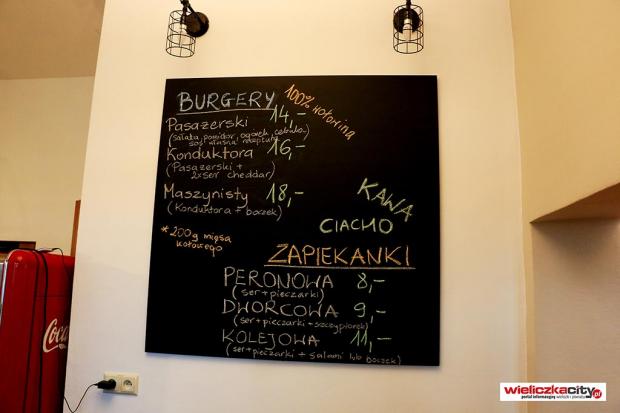 BURGERY
100% wołowina
Pasażerski 14,-
(sałata, pomidor, ogórek, cebula,
sos własna receptura)
Konduktora 16,-
(Pasażerski +
2xser cheddar)
Maszynisty 18,-
(Konduktora + boczek)
KAWA
CIACHO
*200g mięsa
wołowego
ZAPIEKANKI
PERONOWA 8,-
(ser+pieczarki)
DWORCOWA 9,-
(ser+pieczarki+szczypiorek)
KOLEJOWA 11,-
(ser+pieczarki + salami lub boczek)
Coca
wieliczkacity.pl
portal informacyjny wieliczki i powiatu